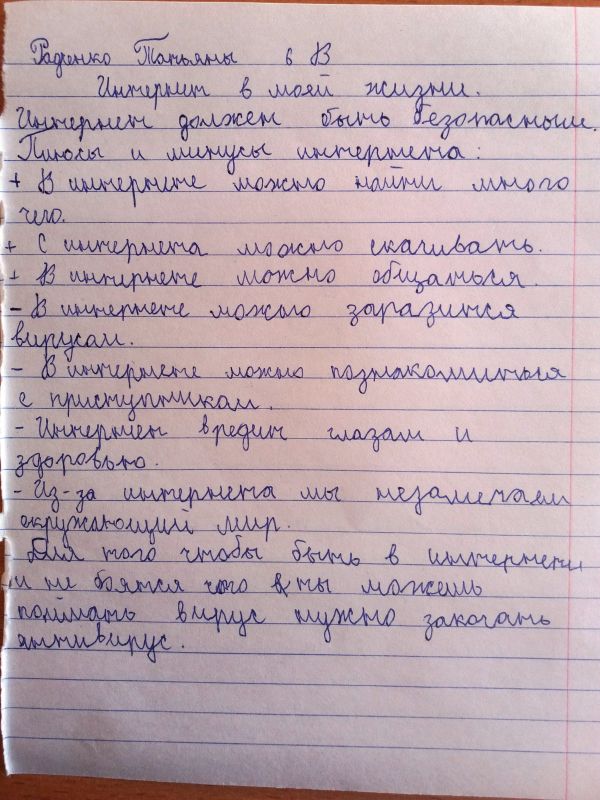 Радченко Татьяны 6 В
Интернет в моей жизни.
Интернет должен быть безопасным.
Плюсы и минусы интернета:
+ В интернете можно найти много
чего.
+ С интернета можно скачивать.
+ В интернете можно общаться.
- В интернете можно заразится
вирусам.
- В интернете можно познакомиться
с приступникам.
- Интернет вредит глазам и
здоровью.
- Из-за интернета мы незамечаем
окружающий мир.
Для того чтобы быть в интернети
и не боятся чего ты можешь
поймать вирус нужно закачать
антивирус.